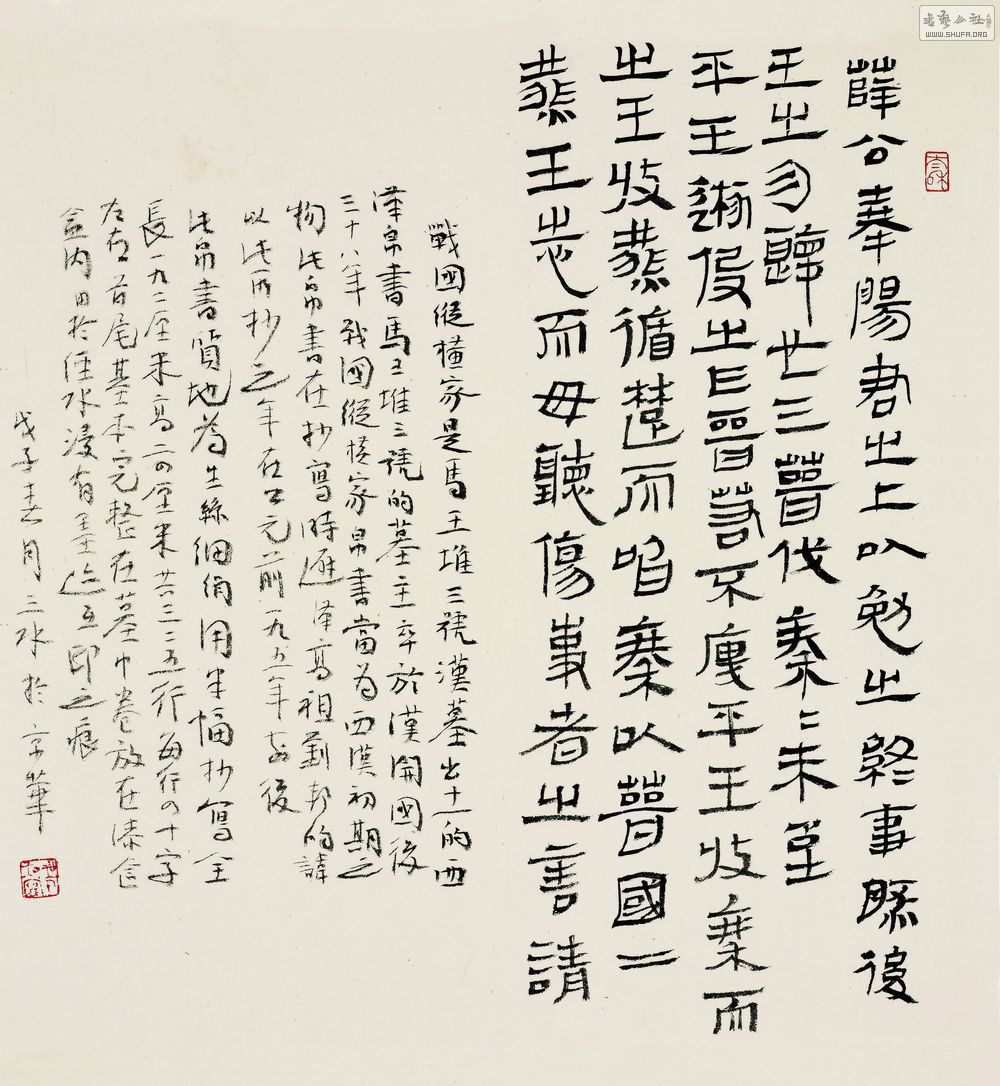 薛公奉陽君之上以勉之終事然後
王之勺歸三晉伐秦二未至
平王役之曰晉若不平王收秦而
之王收燕循楚而啗秦以晉國二
燕王志而毋聽傷事者之言請
戰國縱橫家是馬王堆三號漢墓出土的西
漢帛書馬王堆三號的墓主卒於漢開國後
三十八年戰國縱橫家帛書當為西漢初期之
物此帛書在抄寫時避漢高祖劉邦的諱
以此所抄之年在公元前一九五年前後
此帛書質地為生絲細絹用半幅抄寫全
長一九二厘米高二四厘米共三二五行每行四十字
左右首尾基本完整在墓中卷放在漆食
盒內因於經水浸有墨迹互印之痕
戊子春月三水於京華
書藝公社
WWW.SHUFA.ORG